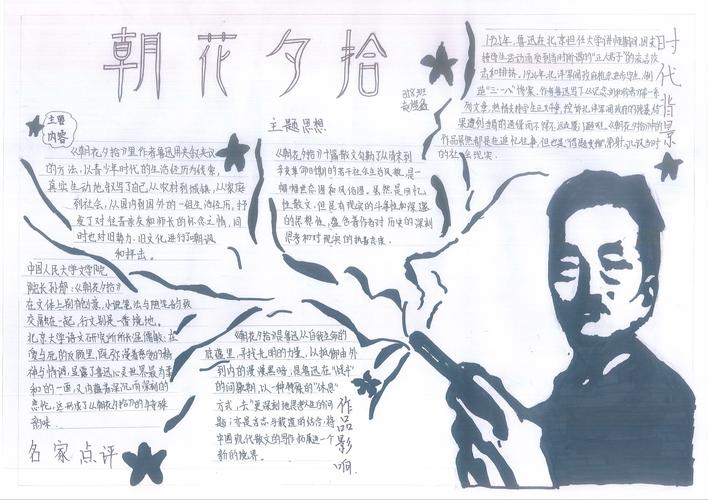 朝花夕拾
主要
内容
《朝花夕拾》里作者鲁迅用夹叙夹议
的方法,以青少年时代的生活经历为线索,
真实生动地叙写了自己从农村到城镇,从家庭
到社会,从国内到国外的一组生活经历,抒
发了对往昔亲友和师长的怀念之情,同
时也对旧势力、旧文化进行了嘲讽
和抨击。
主题思想
《朝花夕拾》十篇散文勾勒了从清末到
辛亥革命时期的若干社会生活风貌,是一
幅幅世态图和风俗画。虽然是回忆
性散文,但是有现实的
的思想性,蕴含着作者对历史的深刻
思考和对现实的执着态度。
时代背景
1925年,鲁迅在北京担任大学讲师期间,因支
持学生运动而受到当时所谓的“正人君子”的流言攻
击和排挤。1926年,北洋军阀政府枪杀进步学生,制
造“三·一八”惨案,作者鲁迅写了《记念刘和珍君》等一系
列文章,热情支持学生正义斗争,控诉北洋军阀政府的残暴,结
果遭到当局的通缉而不得不远走厦门避难。《朝花夕拾》中的
作品虽然都是往追忆往事,但也是“借题发挥”,影射、讽谏当时
的社会现实。
中国人民大学文学院
院长孙郁:《朝花夕拾》
在文体上别有创意,小说笔法与随笔的致
交融在一起,行文别是一番境地。
北京大学语文研究所所长温儒敏:在
爱与死的反顾里,既弥漫着慈爱的精
神与情调,显露了鲁迅心灵世界最为柔
和的一面,又内蕴着深沉而深刻的
悲怆,这形成了《朝花夕拾》的
韵味。
名家点评
《朝花夕拾》是鲁迅从自我生命的
底蕴里,寻找光明的力量,以抵御由外
到内的漫漫黑暗;是鲁迅在“战斗”
的间歇期,以一种特殊的“休息”
方式,去更深刻地思考人生的问
题;亦是古态与叙述的结合,将
中国现代散文的写作拓展进一个
新的境界。
作品影响